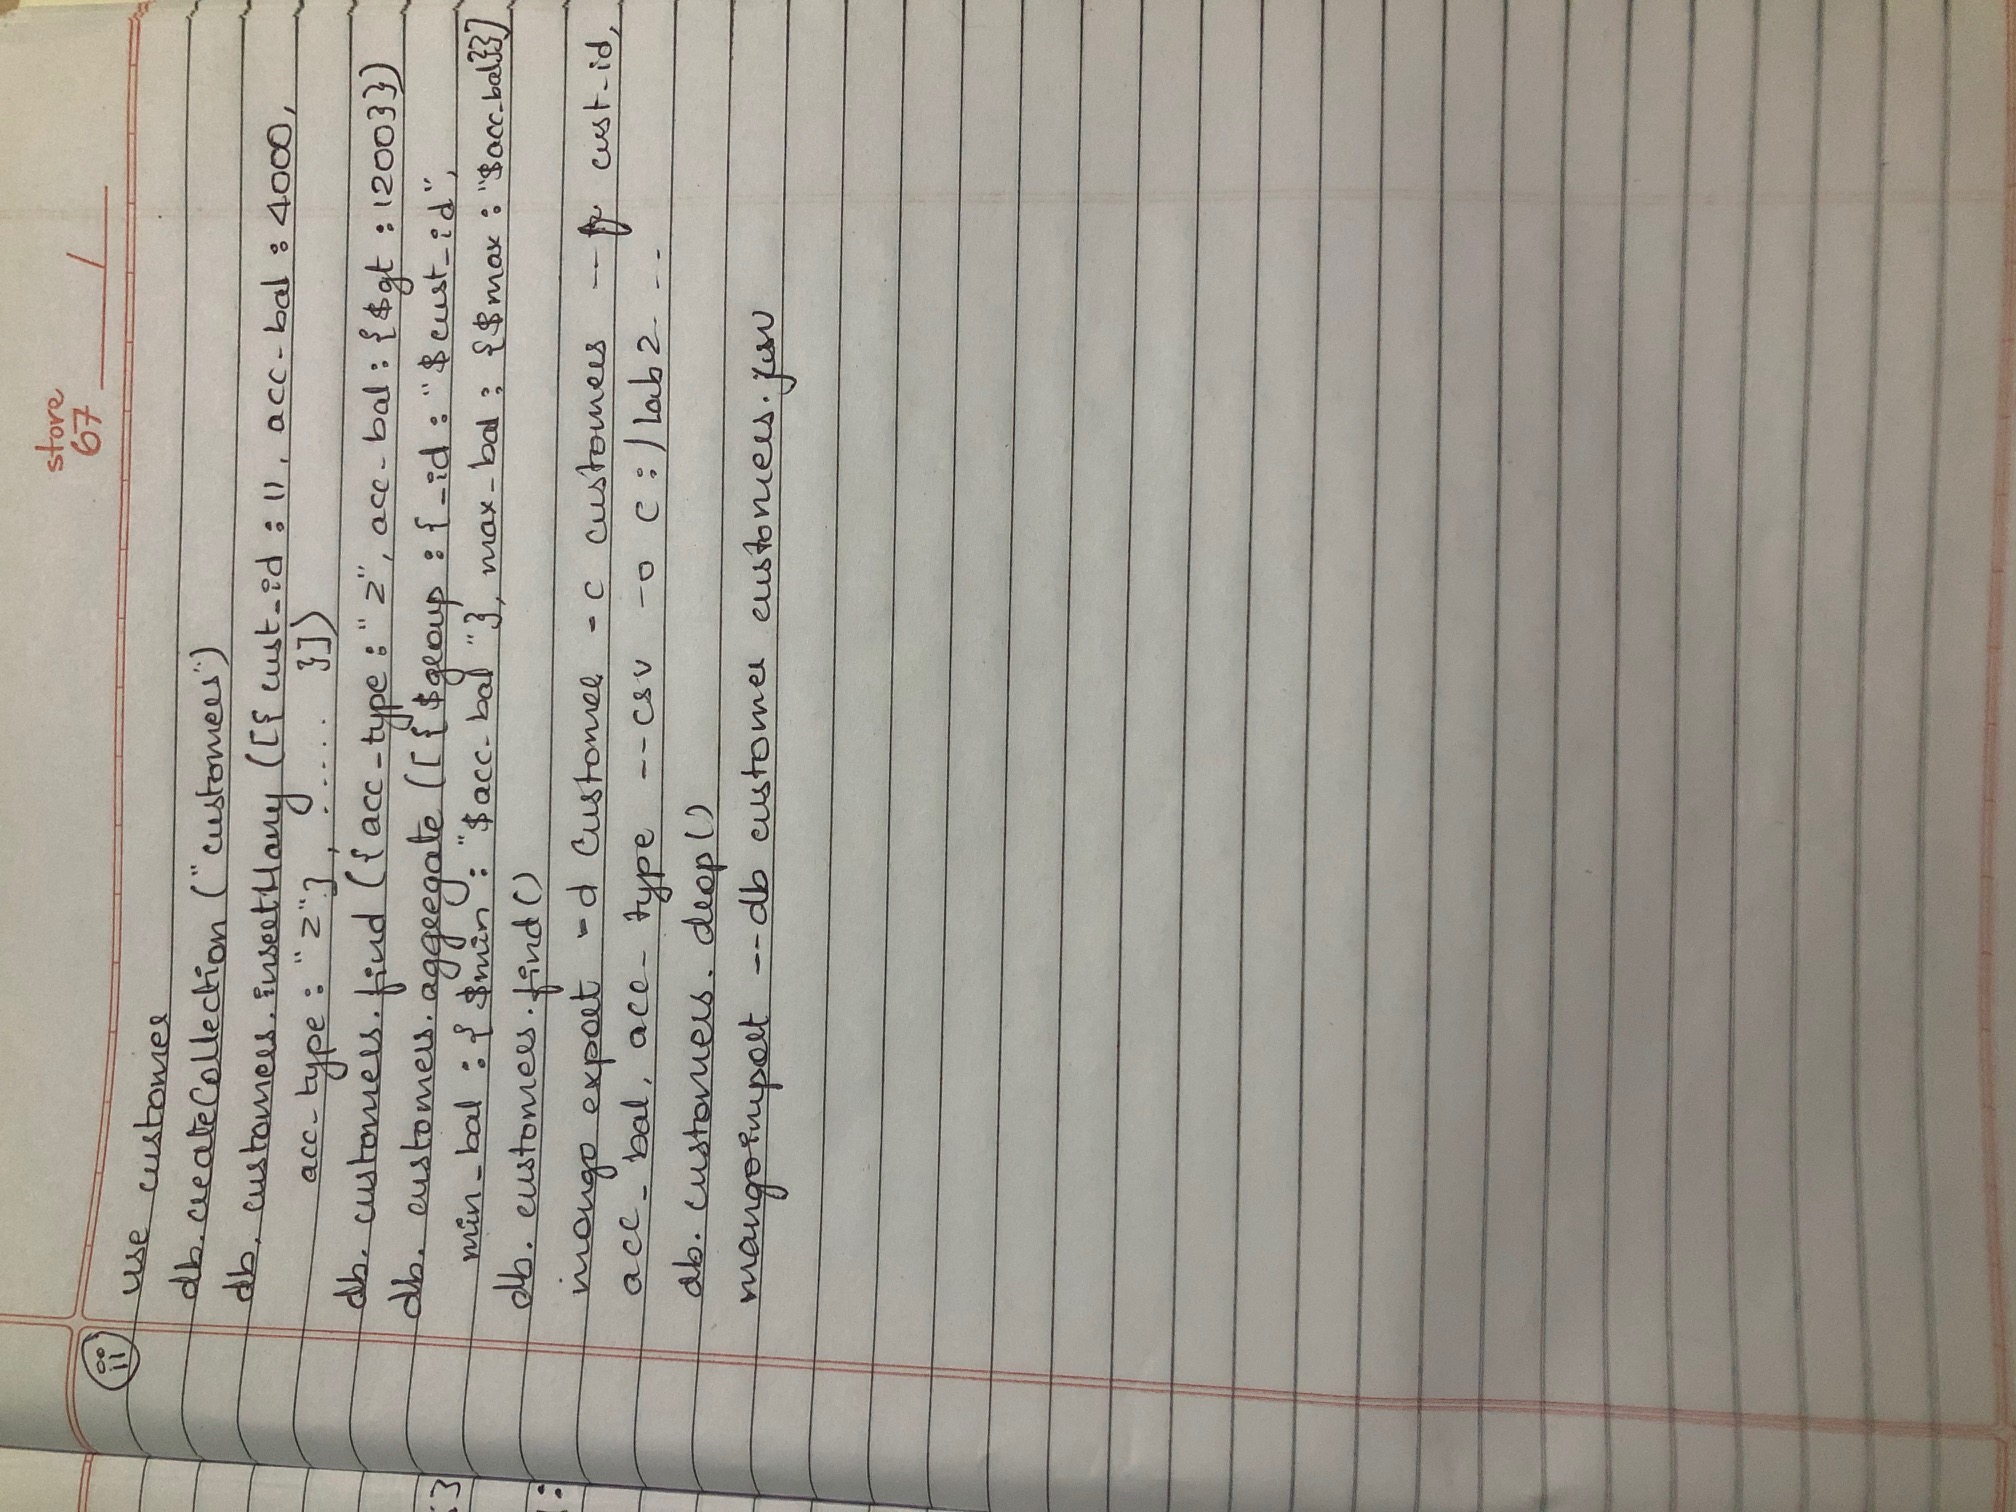 store
67 ____/____
ii
use customer
db.createCollection ("customers")
db. customers.insertMany ([{ cust_id : 11, acc-bal : 4000,
acc-type : "Z"}, ..... }])
db. customers.find ({acc-type : "Z", acc-bal : {$gt : 1200}})
db. customers.aggregate ([{$group : {_id : "$cust_id",
min_bal : {$min : "$acc-bal"}, max-bal : {$max : "$acc-bal}}]
db. customers.find()
mongo export -d Customer -c customers -- f cust-id,
acc_bal, acc-type --csv -o c:/Lab2. --
db. customers. drop()
mangoimport --db customer customers.
:3
: